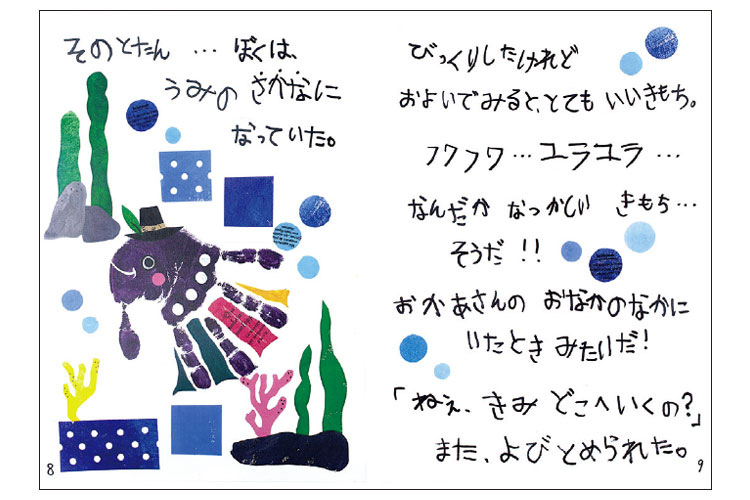 そのとたん … ぼくは、
うみの さかなに
なっていた。
8
びっくりしたけれど
およいでみると、とても いいきもち。
フワフワ … ユラユラ …
なんだか なつかしい きもち…
そうだ !!
おかあさんの おなかのなかに
いたとき みたいだ!
「ねぇ、きみ どこへいくの?」
また、よびとめられた。
9